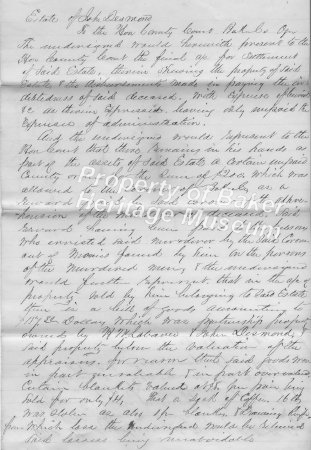 Estate of John Desmond
To the Hon County Court Baker Co Ogn
The undersigned would herewith present to the
Hon County Court the final a/c for Settlement
of Said Estate, therein showing the property of said
Estate & the disbursements made in paying the in-
debtedness of said deceased, with expenses of
&c as therein Expressed having only
Expenses of administration.
And the undersigned would represent to the
Hon Court that there remains in his hands as
part of the assets of Said Estate a Certain unpaid
County order for the Sum of which was
allowed to the as a
Reward for the appre-
hension of the said
Reward having been person
who arrested said murderer by the said Coroner
out of Monies found by him on the persons
of the Murdered men, & the undersigned
would further represent, that in the a/c of
property sold by him belonging to Said Estate
there is a bill of goods amounting to
Dollars, which was partnership property
owned by & John Desmond, &
said property below the valuation of the
appraisers for reason that said goods were
in part unsaleable & in part over valued
Certain blankets valued at per pair being
sold for only $4, that a Sack of Coffee 16 lb,
was stolen as also 1 pr blankets & Drawing Knife
from which loss the undersigned would be relieved
said losses being unavoidable
Property of Baker
Heritage Museum